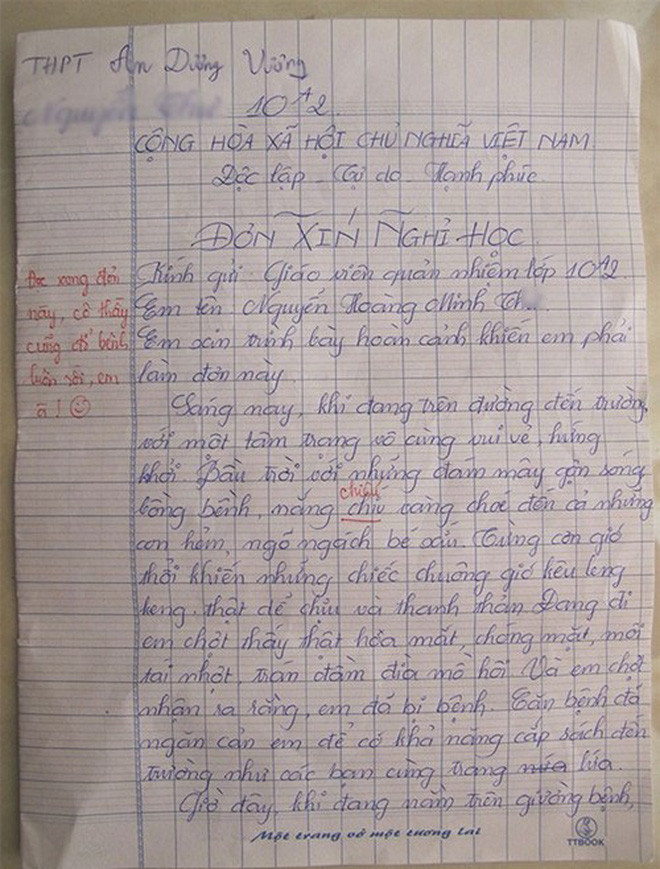 THPT An Dương Vương
Nguyễn
10A2.
CỘNG HÒA XÃ HỘI CHỦ NGHĨA VIỆT NAM.
Độc lập - Tự do - Hạnh phúc.
ĐƠN XIN NGHỈ HỌC
Đọc xong đơn
này, cô thấy
cũng đổ bệnh
luôn rồi, em
ạ! ☺
Kính gửi: Giáo viên quản nhiệm lớp 10A2.
Em tên: Nguyễn Hoàng Minh Th...
Em xin trình bày hoàn cảnh khiến em phải
làm đơn này.
Sáng nay, khi đang trên đường đến trường,
với một tâm trạng vô cùng vui vẻ, hứng
khởi. Bầu trời với những đám mây gợn sóng
chiếu
bồng bềnh, nắng chíu vàng choé đến cả những
con hẻm, ngõ ngách bé xíu. Từng cơn gió
thổi khiến những chiếc chuông gió kêu leng
keng, thật dễ chịu và thanh thản. Đang đi
em chợt thấy thật hoa mắt, chóng mặt, môi
tái nhợt, trán đầm đìa mồ hôi. Và em chợt
nhận ra rằng, em đã bị bệnh. Căn bệnh đã
ngăn cản em để có khả năng cắp sách đến
trường như các bạn cùng trang nứa lúa.
Giờ đây, khi đang nằm trên giường bệnh,
Một trang vở một tương lai
TTBOOK